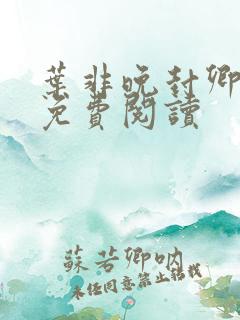 葉非晚封卿
免費閱讀
蘇若卿吶
未经同意禁止转载